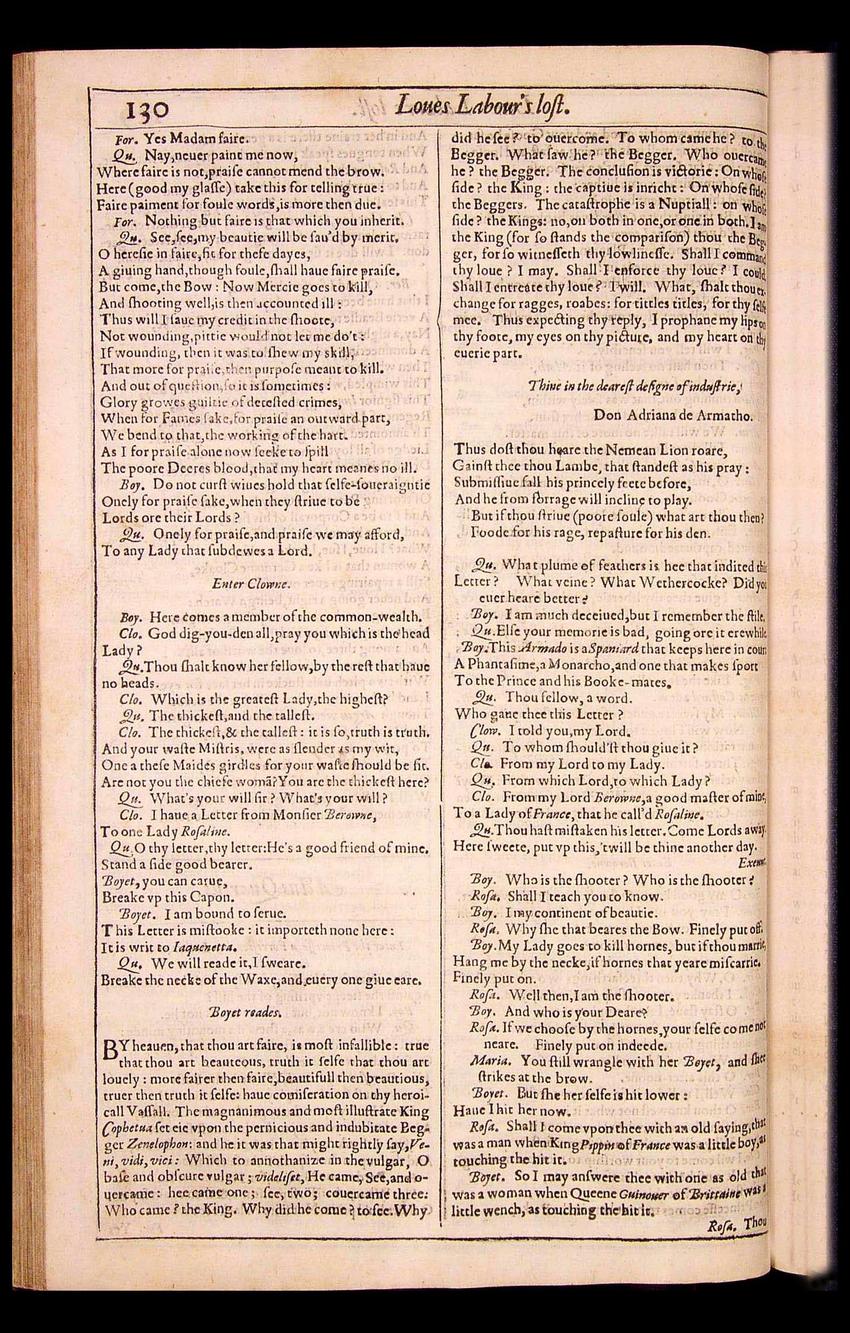 130
Loues Labour's lost.
For. Yes Madam faire.
Qu. Nay, neuer paint me now,
Where faire is not, praise cannot mend the brow.
Here (good my glasse) take this for telling true:
Faire paiment for foule words, is more then due.
For. Nothing but faire is that which you inherit.
Qu. See, see, my beautie will be sau'd by merit.
O heresie in faire, fit for these dayes,
A giuing hand, though foule, shall haue faire praise.
But come, the Bow: Now Mercie goes to kill,
And shooting well, is then accounted ill:
Thus will I saue my credit in the shoote,
Not wounding, pittie would not let me do't:
If wounding, then it was to shew my skill,
That more for praise, then purpose meant to kill.
And out of question, so it is sometimes:
Glory growes guiltie of detested crimes,
When for Fames sake, for praise an outward part,
We bend to that, the working of the hart.
As I for praise alone now seeke to spill
The poore Deeres blood, that my heart meanes no ill.
Boy. Do not curst wiues hold that selfe-soueraigntie
Onely for praise sake, when they striue to be
Lords ore their Lords?
Qu. Onely for praise, and praise we may afford,
To any Lady that subdewes a Lord.
Enter Clowne.
Boy. Here comes a member of the common-wealth.
Clo. God dig-you-den all, pray you which is the head
Lady?
Qu. Thou shalt know her fellow, by the rest that haue
no heads.
Clo. Which is the greatest Lady, the highest?
Qu. The thickest, and the tallest.
Clo. The thickest, & the tallest: it is so, truth is truth.
And your waste Mistris, were as slender as my wit,
One a these Maides girdles for your waste should be fit.
Are not you the chiefe womā? You are the thickest here?
Qu. What's your will sir? What's your will?
Clo. I haue a Letter from Monsier Berowne,
To one Lady Rosaline.
Qu. O thy letter, thy letter: He's a good friend of mine.
Stand a side good bearer.
Boyet, you can carue,
Breake vp this Capon.
Boyet. I am bound to serue.
This Letter is mistooke: it importeth none here:
It is writ to Iaquenetta.
Qu. We will reade it, I sweare.
Breake the necke of the Waxe, and euery one giue eare.
Boyet reades.
BY heauen, that thou art faire, is most infallible: true
that thou art beauteous, truth it selfe that thou art
louely: more fairer then faire, beautifull then beautious,
truer then truth it selfe: haue comiseration on thy heroi-
call Vassall. The magnanimous and most illustrate King
Cophetua set eie vpon the pernicious and indubitate Beg-
ger Zenelophon: and he it was that might rightly say, Ve-
ni, vidi, vici: Which to annothanize in the vulgar, O
base and obscure vulgar; videliset, He came, See, and o-
uercame: hee came one; see, two; couercame three:
Who came? the King. Why did he come? to see. Why
did he see? to ouercome. To whom came he? to the
Begger. What saw he? the Begger. Who ouercame
he? the Begger. The conclusion is victorie: On whose
side? the King: the captiue is inricht: On whose side?
the Beggers. The catastrophe is a Nuptiall: on whose
side? the Kings: no, on both in one, or one in both. I am
the King (for so stands the comparison) thou the Beg-
ger, for so witnesseth thy lowlinesse. Shall I command
thy loue? I may. Shall I enforce thy loue? I could.
Shall I entreate thy loue? I will. What, shalt thou ex-
change for ragges, roabes: for tittles titles, for thy selfe
mee. Thus expecting thy reply, I prophane my lips on
thy foote, my eyes on thy picture, and my heart on thy
euerie part.
Thine in the dearest designe of industrie,
Don Adriana de Armatho.
Thus dost thou heare the Nemean Lion roare,
Gainst thee thou Lambe, that standest as his pray:
Submissiue fall his princely feete before,
And he from forrage will incline to play.
But if thou striue (poore soule) what art thou then?
Foode for his rage, repasture for his den.
Qu. What plume of feathers is hee that indited this
Letter? What veine? What Wethercocke? Did you
euer heare better?
Boy. I am much deceiued, but I remember the stile.
Qu. Else your memorie is bad, going ore it erewhile.
Boy. This Armado is a Spaniard that keeps here in court
A Phantasime, a Monarcho, and one that makes sport
To the Prince and his Booke-mates.
Qu. Thou fellow, a word.
Who gaue thee this Letter?
Clow. I told you, my Lord.
Qu. To whom should'st thou giue it?
Clo. From my Lord to my Lady.
Qu. From which Lord, to which Lady?
Clo. From my Lord Berowne, a good master of mine,
To a Lady of France, that he call'd Rosaline.
Qu. Thou hast mistaken his letter. Come Lords away.
Here sweete, put vp this, 'twill be thine another day.
Exeunt.
Boy. Who is the shooter? Who is the shooter?
Rosa. Shall I teach you to know.
Boy. I my continent of beautie.
Rosa. Why she that beares the Bow. Finely put off.
Boy. My Lady goes to kill hornes, but if thou marrie,
Hang me by the necke, if hornes that yeare miscarrie.
Finely put on.
Rosa. Well then, I am the shooter.
Boy. And who is your Deare?
Rosa. If we choose by the hornes, your selfe come not
neare. Finely put on indeede.
Maria. You still wrangle with her Boyet, and shee
strikes at the brow.
Boyet. But she her selfe is hit lower:
Haue I hit her now.
Rosa. Shall I come vpon thee with an old saying, that
was a man when King Pippin of France was a little boy, as
touching the hit it.
Boyet. So I may answere thee with one as old that
was a woman when Queene Guinouer of Brittaine was a
little wench, as touching the hit it.
Rosa. Thou